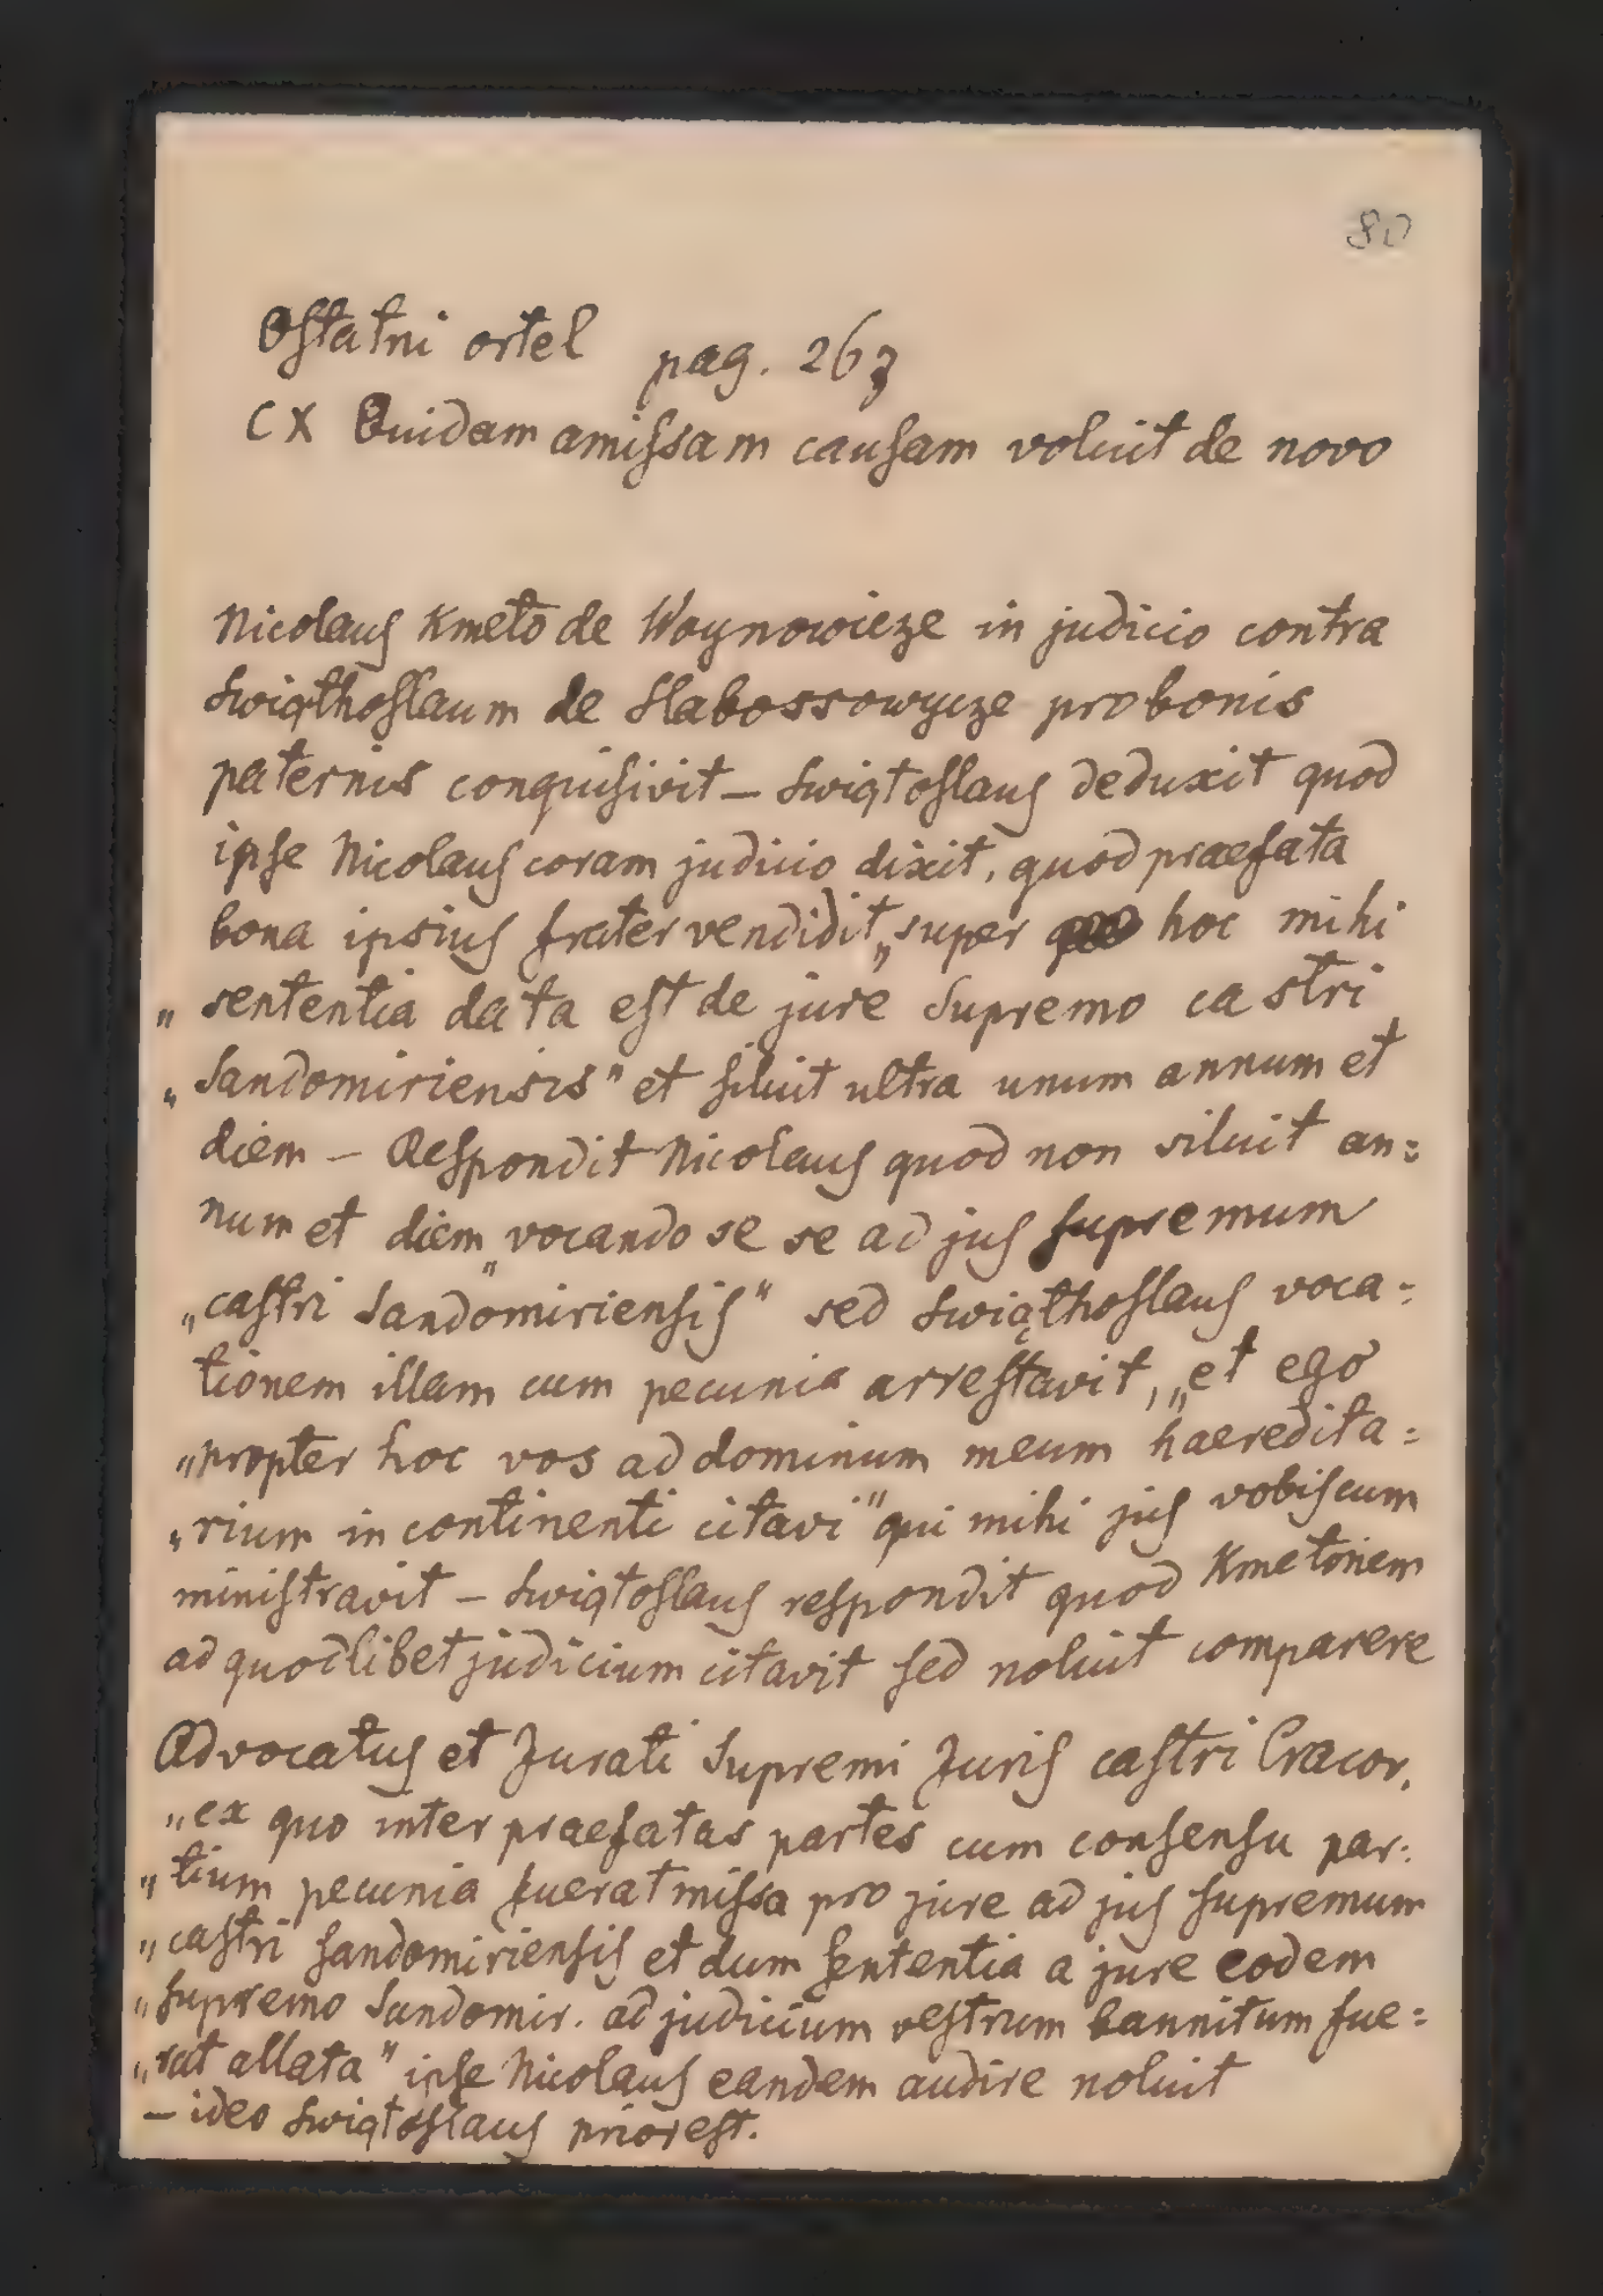 80
Ostatni ortel pag. 263
CX Quidam amissam causam voluit de novo
Nicolaus Kmeto de Woynowicze in judicio contra
Swiąthoslaum de Slabossowycze pro bonis
paternis conquisivit – Swiątoslaus deduxit quod
ipse Nicolaus coram judicio dixit, quod praefata
bona ipsius frater vendidit „super hoc mihi
„sententia data est de jure Supremo castri
„Sandomiriensis" et siluit ultra unum annum et
diem – Respondit Nicolaus quod non siluit an=
num et diem „vocando se se ad jus supremum
„castri Sandomiriensis" sed Swiąthoslaus voca=
tionem illam cum pecunia arrestavit, „et ego
„propter hoc vos ad dominum meum haeredita=
„rium in continenti citavi" qui mihi jus vobiscum
ministravit – Swiątoslaus respondit quod Kmetonem
ad quodlibet judicium citavit sed noluit comparere
Advocatus et Jurati Supremi Juris castri Cracov.
„ex quo inter praefatas partes cum consensu par=
„tium pecunia fuerat missa pro jure ad jus supremum
„castri sandomiriensis et dum sententia a jure eodem
„supremo Sandomir. ad judicium vestrum bannitum fue=
„rat allata" ipse Nicolaus eandem audire noluit
– ideo Swiątoslaus prior est.